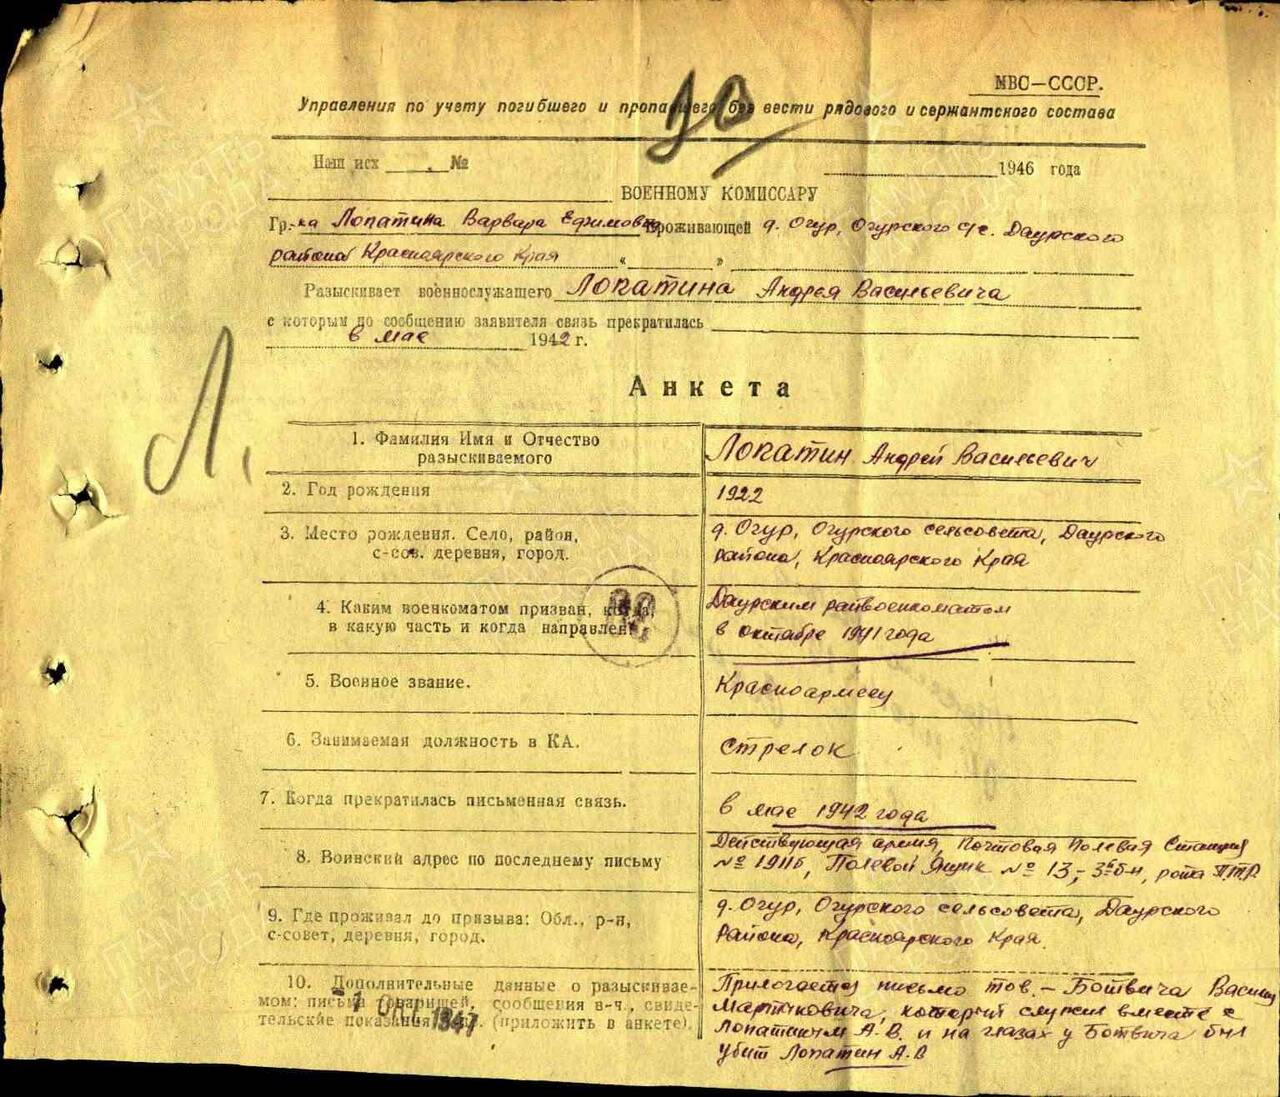 10
МВС—СССР.
Управления по учету погибшего и пропавшего без вести рядового и сержантского состава
Наш исх ____ . №
1946 года
ВОЕННОМУ КОМИССАРУ
Гр-ка Лопатина Варвара Ефимовна проживающей д. Огур, Огурского с/с. Даурского
района Красноярского Края « »
Разыскивает военнослужащего Лопатина Андрея Васильевича
с которым по сообщению заявителя связь прекратилась
в мае 1942 г.
Л.
Анкета
1. Фамилия Имя и Отчество
разыскиваемого
Лопатин Андрей Васильевич
2. Год рождения
1922
3. Место рождения. Село, район,
с-сов. деревня, город.
д. Огур, Огурского сельсовета, Даурского
района, Красноярского Края
4. Каким военкоматом призван, когда,
в какую часть и когда направлен
Даурским райвоенкоматом
в октябре 1941 года
5. Военное звание.
Красноармеец
6. Занимаемая должность в КА.
стрелок
7. Когда прекратилась письменная связь.
в мае 1942 года
8. Воинский адрес по последнему письму
Действующая армия, Почтовая Полевая Станция
№ 1911б, Полевой Ящик № 13, - 3й б-н, рота П.Т.Р.
9. Где проживал до призыва: Обл., р-н,
с-совет, деревня, город.
д. Огур, Огурского сельсовета, Даурского
района, Красноярского Края.
10. Дополнительные данные о разыскивае-
мом: письма товарищей, сообщения в-ч., свиде-
тельские показания (приложить в анкете).
1 ОКТ 1947
Прилогается письмо тов. - Ботвича Василия
Мартыновича, который служил вместе с
Лопатиным А.В. и на глазах у Ботвича был
убит Лопатин А.В